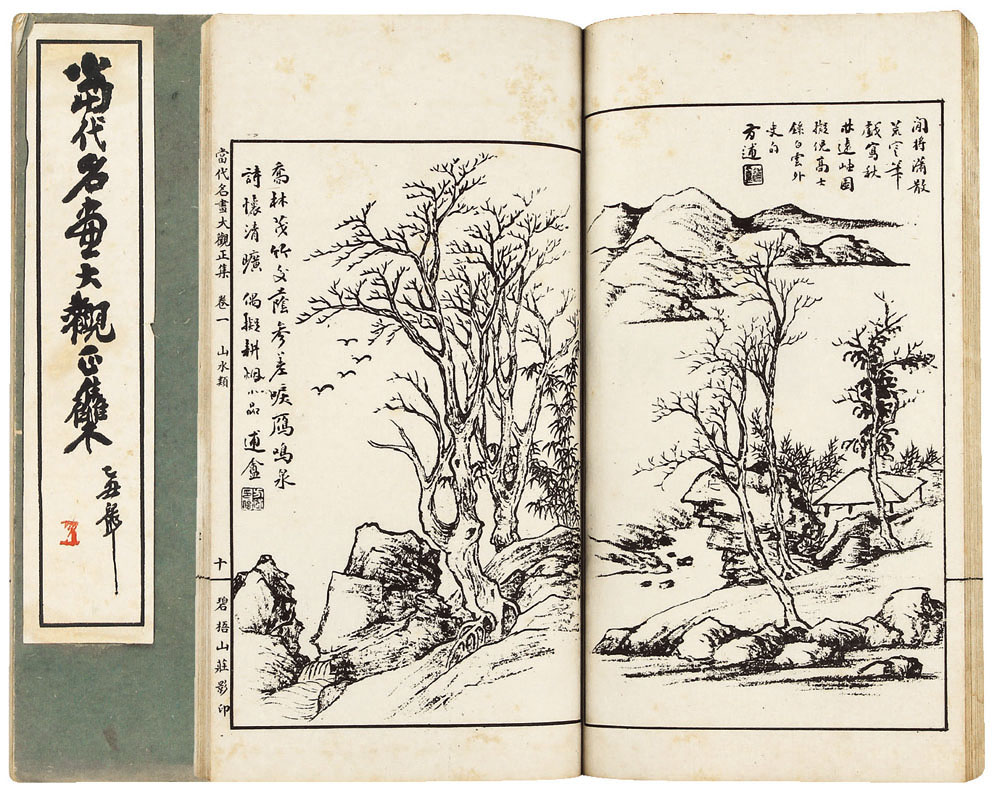 當代名畫大觀正集
閒將瀟散
荒寒筆
戲寫秋
林遠岫圖
擬倪高士
錄白雲外
史句
方逋
喬林茂竹交蔭參差唳鴈鳴泉
詩懷清曠 偶擬耕烟小品 逋盦
當代名畫大觀正集 卷一 山水類
十
碧梧山莊影印